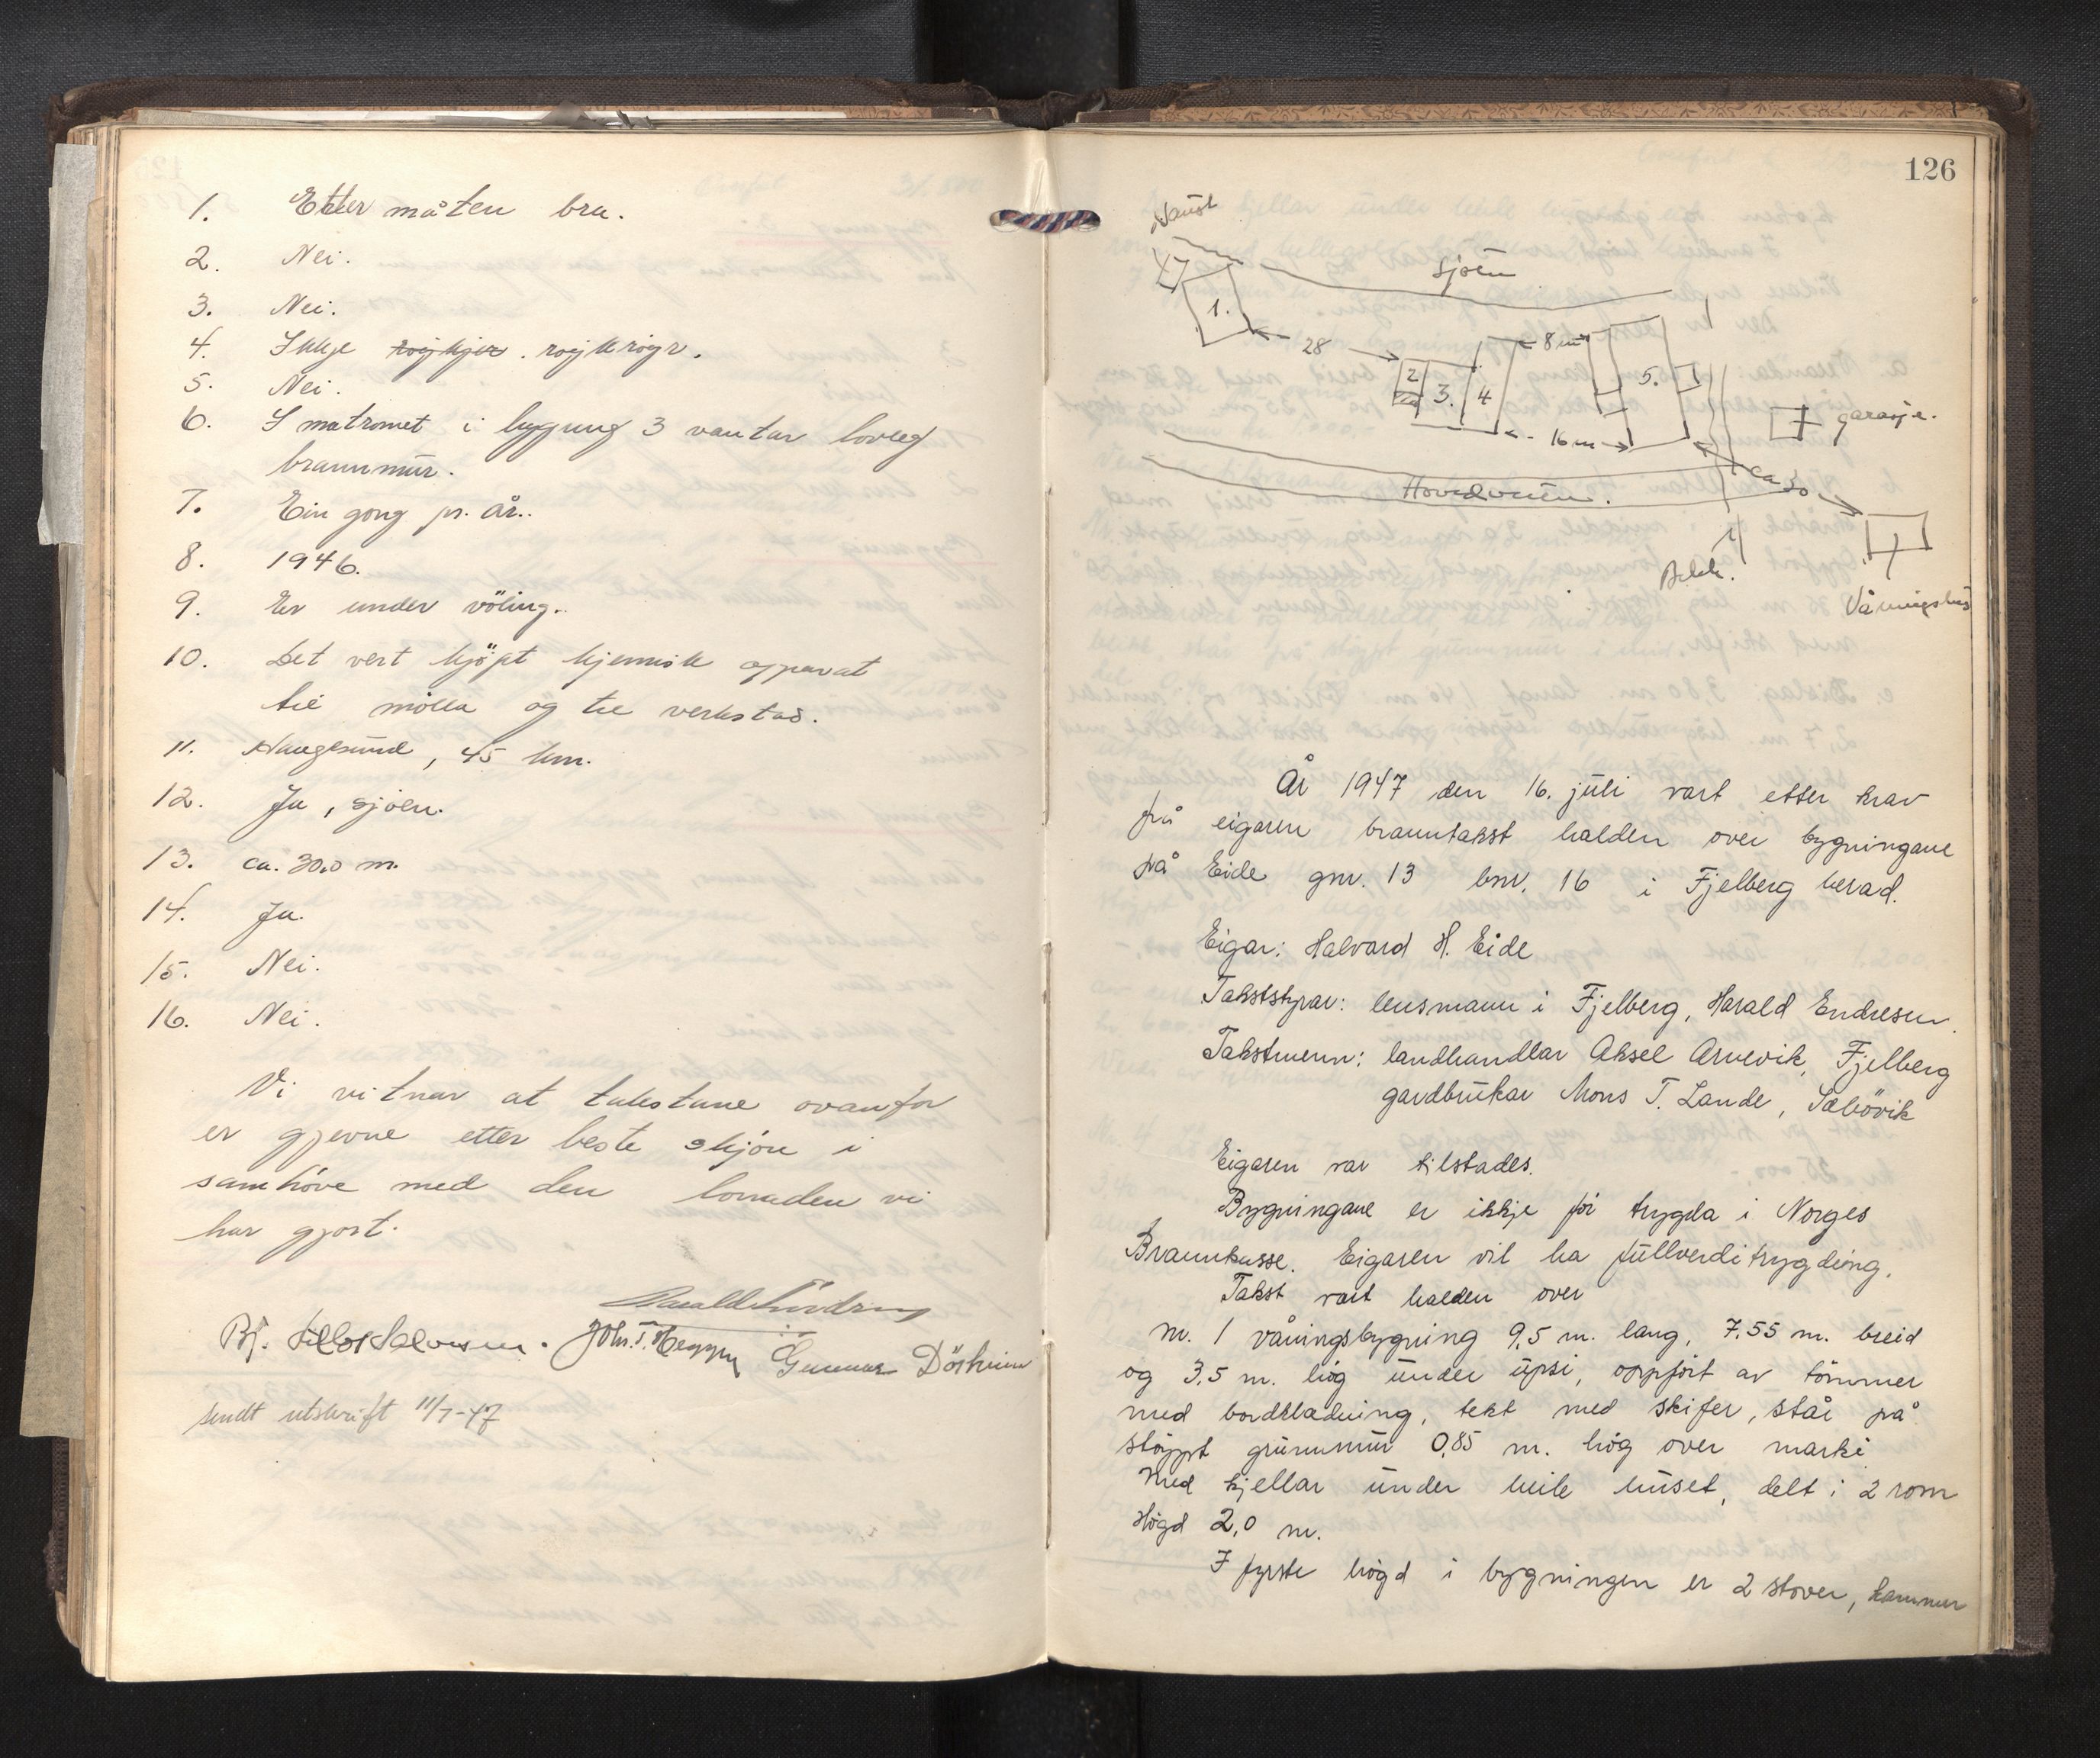 1. Etter måten bra.
2. Nei.
3. Nei.
4. Ikkje røykjer. røykrøyr.
5. Nei.
6. I matromet i bygning 3 vantar lovleg
brannmur.
7. Ein gong pr. år.
8. 1946.
9. Er under völing.
10. Det vert kjöpt kjemisk apparat
til mölla og til verkstad.
11. Haugesund, 45 km.
12. Ja, sjöen.
13. ca. 30,0 m.
14. Ja.
15. Nei.
16. Nei.
Vi vitnar at takstane ovanfor
er gjevne etter beste skjön i
samhöve med den lovnaden vi
har gjort.
Harald Endresen
Bj. Halvorsen. Johs. T. Heggen Gunnar Dörheim
sendt utskrift 11/7-47
126
Naust
Sjöen
1.
28
8 m
2
3.
4
5.
garasje.
16 m
ca 30
Hovedveien.
Bekk.
Våningshus
År 1947 den 16. júli vart etter krav
frå eigaren branntakst halden over bygningane
på Eide gnr. 13 bnr. 16 i Fjelberg herad.
Eigar: Halvard H. Eide
Takststyrar: lensmann i Fjelberg, Harald Endresen.
Takstmenn: landhandlar Aksel Arnevik, Fjelberg
gardbrukar Mons T. Lande, Sæbövik
Eigaren var tilstades.
Bygningane er ikkje för trygda i Norges
Brannkasse. Eigaren vil ha fullverditrygding.
Takst vart halden over
nr. 1 våningsbygning 9,5 m. lang, 7,55 m. breid
og 3,5 m. høg under upsi, oppført av tömmer
med bordkledning, tekt med skifer, står på
støypt grunnmur 0,85 m. høg over marki
Med kjellar under heile huset, delt i 2 rom
Högd 2,0 m.
I fyrste högd i bygningen er 2 stover, kammer